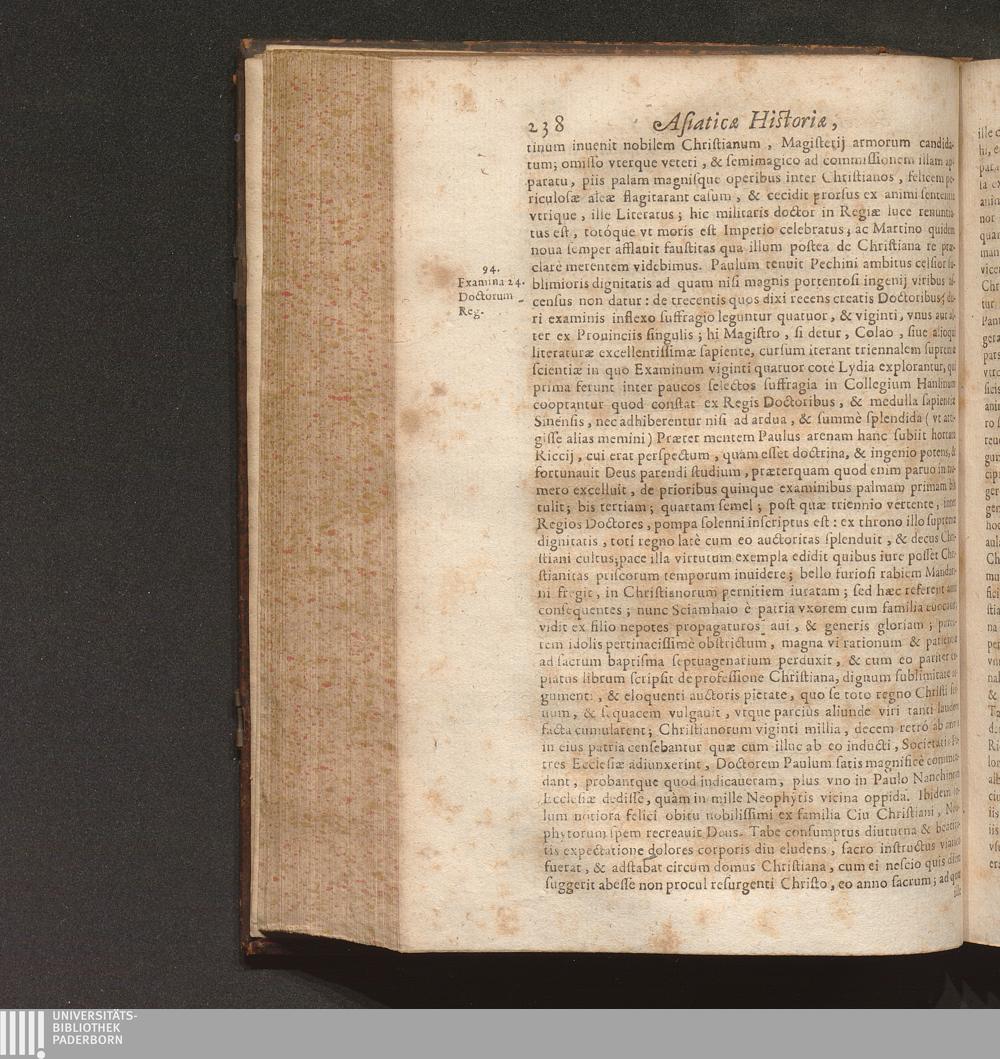 238 Asiaticæ Historiæ,
tinum inuenit nobilem Chriſtianum , Magiſterij armorum candida-
tum; omiſſo vterque veteri , & ſemimagico ad commiſſionem illam ap-
paratu, piis palam magniſque operibus inter Chriſtianos , felicem pe-
riculoſæ aleæ flagitarant caſum , & cecidit prorſus ex animi ſententia
vtrique , ille Literatus ; hic militaris doctor in Regiæ luce renuntia-
tus eſt , totóque vt moris eſt Imperio celebratus ; ac Martino quidem
noua ſemper afflauit fauſtitas qua illum poſtea de Chriſtiana re præ-
clarè merentem videbimus. Paulum tenuit Pechini ambitus celſior ſu-
94.
Examina 24.
Doctorum
Reg.
blimioris dignitatis ad quam niſi magnis portentoſi ingenij viribus aſ-
cenſus non datur : de trecentis quos dixi recens creatis Doctoribus, du-
ri examinis inflexo ſuffragio leguntur quatuor , & viginti, vnus aut al-
ter ex Prouinciis ſingulis ; hi Magiſtro , ſi detur , Colao , ſiue alioqui
literaturæ excellentiſſimæ ſapiente, curſum iterant triennalem ſupremæ
ſcientiæ in quo Examinum viginti quatuor cote Lydia explorantur, qui
prima ferunt inter paucos ſelectos ſuffragia in Collegium Hanlinum
cooptantur quod conſtat ex Regis Doctoribus , & medulla ſapientiæ
Sinenſis , nec adhiberentur niſi ad ardua , & ſummè ſplendida ( vt atti-
giſſe alias memini ) Præter mentem Paulus arenam hanc ſubiit hortatu
Riccij , cui erat perſpectum , quam eſſet doctrina, & ingenio potens, &
fortunauit Deus parendi ſtudium , præterquam quod enim paruo in nu-
mero excelluit , de prioribus quinque examinibus palmam primam bis
tulit; bis tertiam ; quartam ſemel ; poſt quæ triennio vertente , inter
Regios Doctores , pompa ſolenni inſcriptus eſt : ex throno illo ſupremæ
dignitatis , toti regno latè cum eo auctoritas ſplenduit , & decus Chri-
ſtiani cultus; pace illa virtutum exempla edidit quibus iure poſſet Chri-
ſtianitas priſcorum temporum inuidere ; bello furioſi rabiem Mandari-
ni fregit , in Chriſtianorum pernitiem iuratam ; ſed hæc referent anni
conſequentes ; nunc Sciamhaio è patria vxorem cum familia
vidit ex filio nepotes propagaturos aui , & generis gloriam ; paren-
tem idolis pertinaciſſimè obſtrictum , magna vi rationum & patientia
ad ſacrum baptiſma ſeptuagenarium perduxit , & cum eo pariter
piatus librum ſcripſit de profeſſione Chriſtiana, dignum ſublimitate ar-
gumenti , & eloquenti auctoris pietate , quo ſe toto regno Chriſti ſer-
uum , & ſequacem vulgauit , vtque parcius aliunde viri tanti laudem
facta cumularent ; Chriſtianorum viginti millia , decem retrò ab annis
in eius patria cenſebantur quæ cum illuc ab eo inducti , Societatis Pa-
tres Eccleſiæ adiunxerint , Doctorem Paulum ſatis magnificè commen-
dant , probantque quod indicaueram, plus vno in Paulo Nanchinensi
Eccleſiæ dediſſe , quàm in mille Neophytis vicina oppida. Ibidem
lum notiora felici obitu nobiliſſimi ex familia Ciu Chriſtiani , Neo-
phytorum ſpem recreauit Deus. Tabe conſumptus diuturna & beatita-
tis expectatione dolores corporis diu eludens , ſacro inſtructus viatico
fuerat , & adſtabat circum domus Chriſtiana , cum ei neſcio quis diem
ſuggerit abeſſe non procul reſurgenti Chriſto , eo anno ſacrum ; ad quæ
ille
UNIVERSITÄTS-
BIBLIOTHEK
PADERBORN